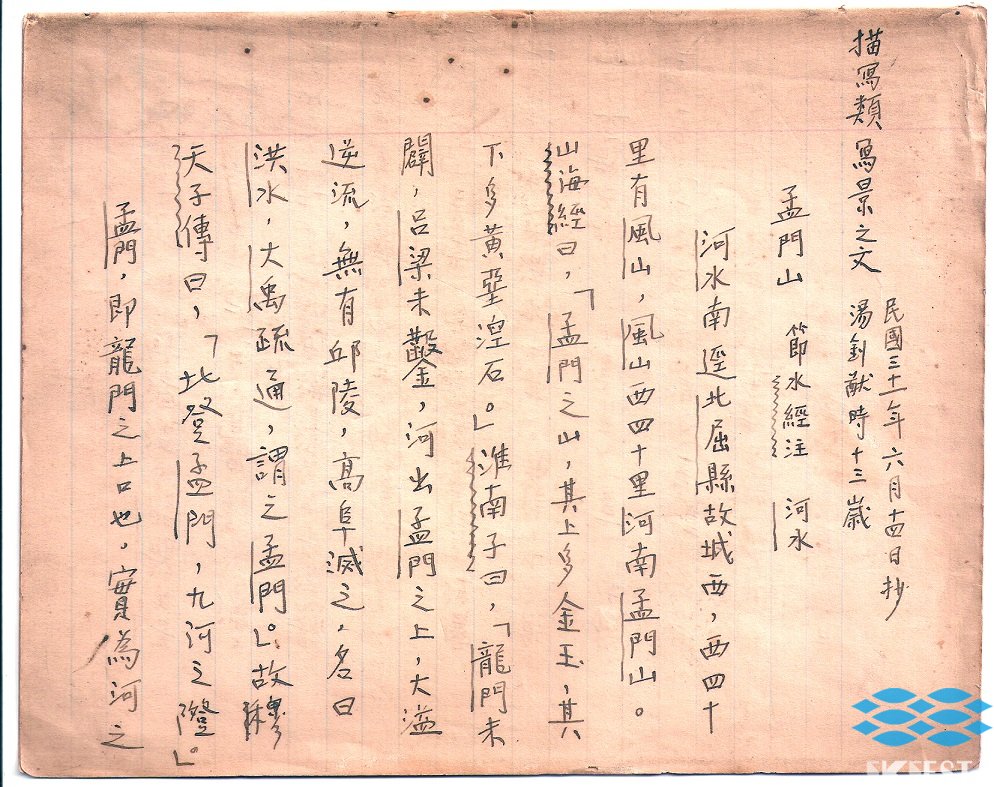 描寫類 寫景之文
民國三十一年 六月十四日抄
湯釗猷時十三歲
孟門山 節水經注 河水
河水南逕北屈縣故城西，西四十
里有風山，風山西四十里河南孟門山。
山海經曰，「孟門之山，其上多金玉，其
下多黃堊涅石。」淮南子曰，「龍門未
闢，呂梁未鑿，河出孟門之上，大溢
逆流，無有邱陵，高阜滅之，名曰
洪水，大禹疏通，謂之孟門。」故穆
天子傳曰，「北登孟門，九河之隥。」
孟門，即龍門之上口也，實為河之